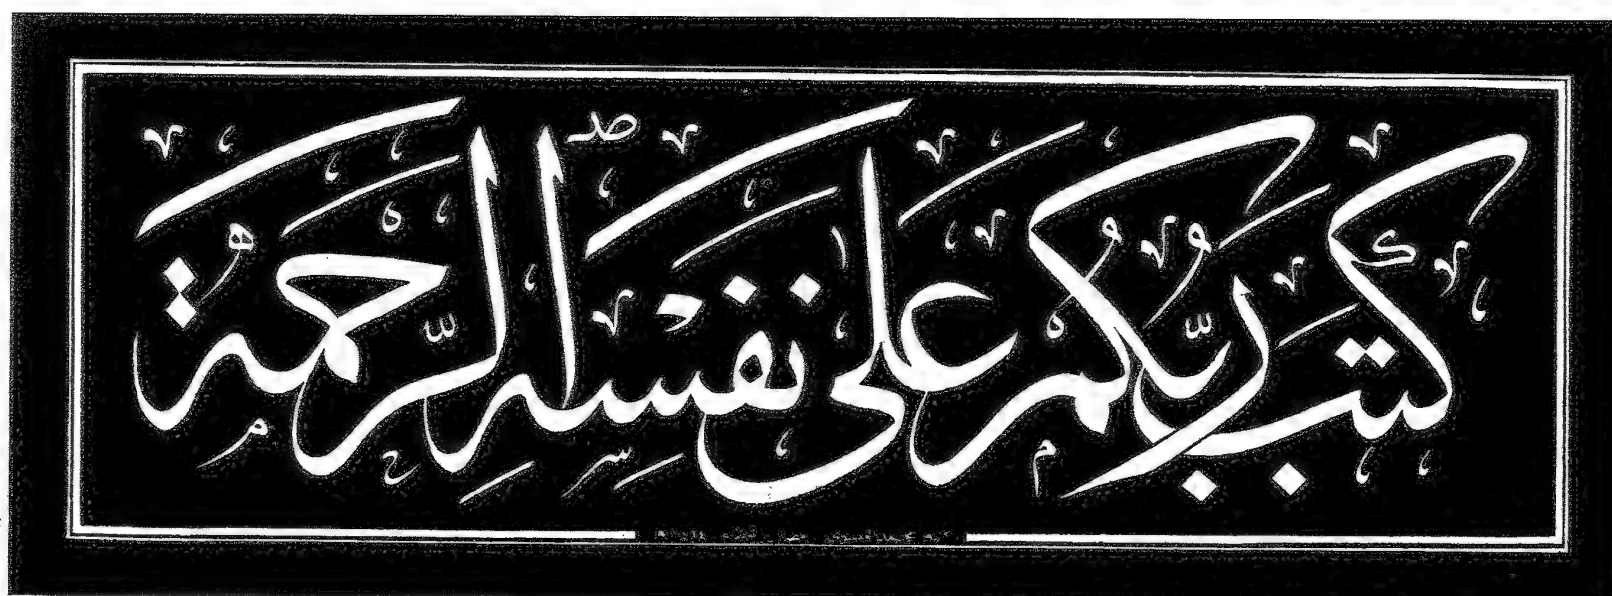 كَتَبَ رَبُّكُمْ عَلَىٰ نَفْسِهِ الرَّحْمَةَ